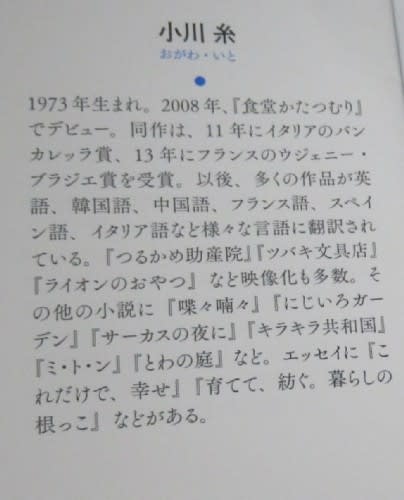 小川 糸
おがわ・いと
1973年生まれ。2008年、『食堂かたつむり』
でデビュー。同作は、11年にイタリアのバン
カレッラ賞、13年にフランスのウジェニー・
ブラジエ賞を受賞。以後、多くの作品が英
語、韓国語、中国語、フランス語、スペイ
ン語、イタリア語など様々な言語に翻訳され
ている。『つるかめ助産院』『ツバキ文具店』
『ライオンのおやつ』など映像化も多数。そ
の他の小説に『喋々喃々』『にじいろガー
デン』『サーカスの夜に』『キラキラ共和国』
『ミ・ト・ン』『とわの庭』など。エッセイに『こ
れだけで、幸せ』『育てて、紡ぐ。暮らしの
根っこ』などがある。